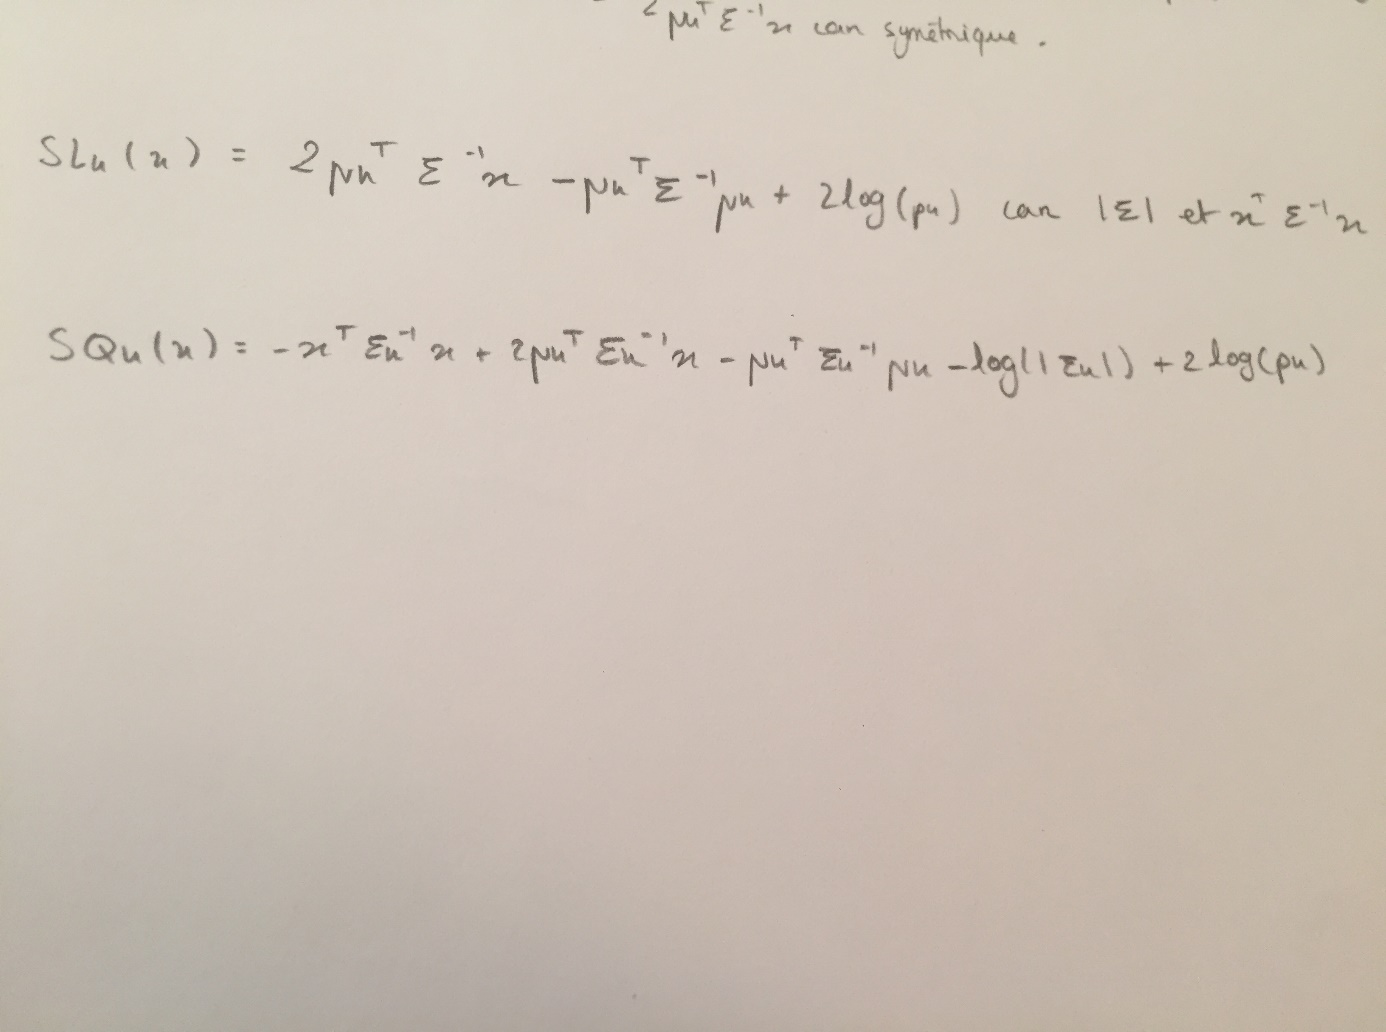 2 μkᵀ Σ⁻¹x car symétrique.
SLk(x) = 2μkᵀ Σ⁻¹x - μkᵀ Σ⁻¹ μk + 2log(pk) car |Σ| et xᵀ Σ⁻¹ x
SQk(x) = -xᵀ Σk⁻¹ x + 2μkᵀ Σk⁻¹ x - μkᵀ Σk⁻¹ μk - log(|Σk|) + 2 log(pk)